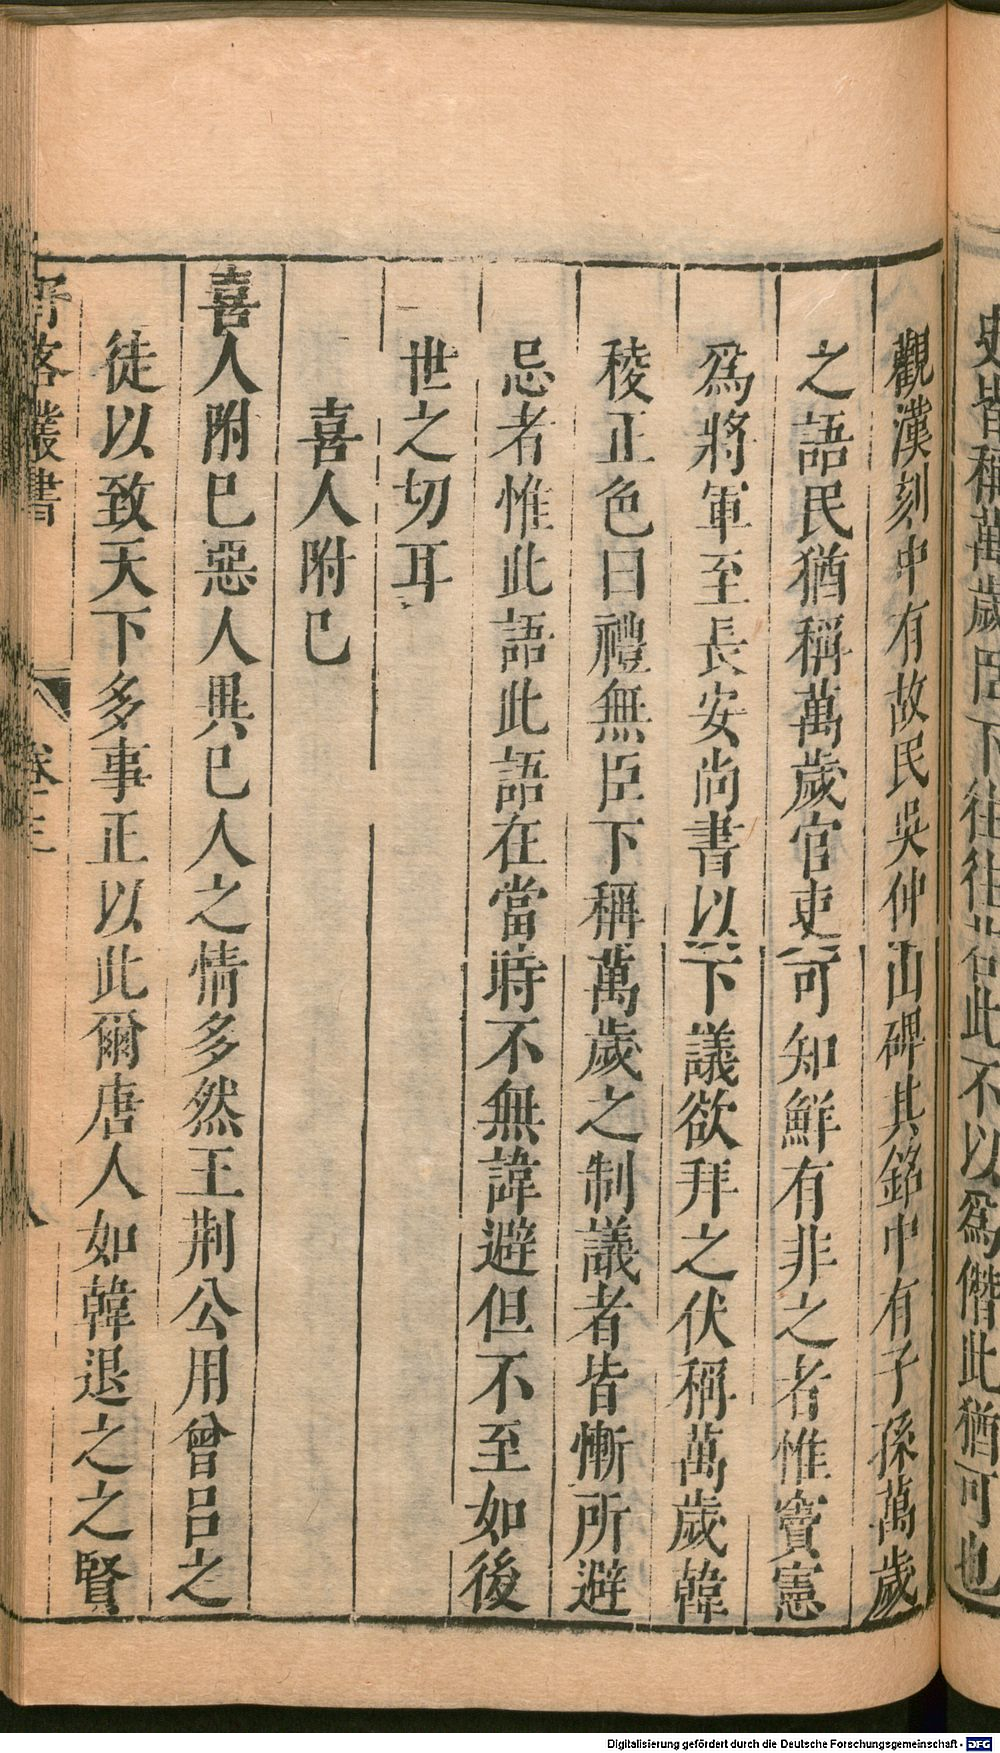 史皆稱萬歲臣下往往若此不以爲僭此猶可也
觀漢刻中有故民吳仲山碑其銘中有子孫萬歲
之語民猶稱萬歲官吏可知鮮有非之者惟竇憲
爲將軍至長安尚書以下議欲拜之伏稱萬歲韓
稜正色曰禮無臣下稱萬歲之制議者皆慚所避
忌者惟此語此語在當時不無諱避但不至如後
世之切耳
喜人附已
喜人附巳惡人異巳人之情多然王荆公用曾吕之
徒以致天下多事正以此爾唐人如韓退之之賢
叢書
卷十三
八
Digitalisierung gefördert durch die Deutsche Forschungsgemeinschaft - DFG